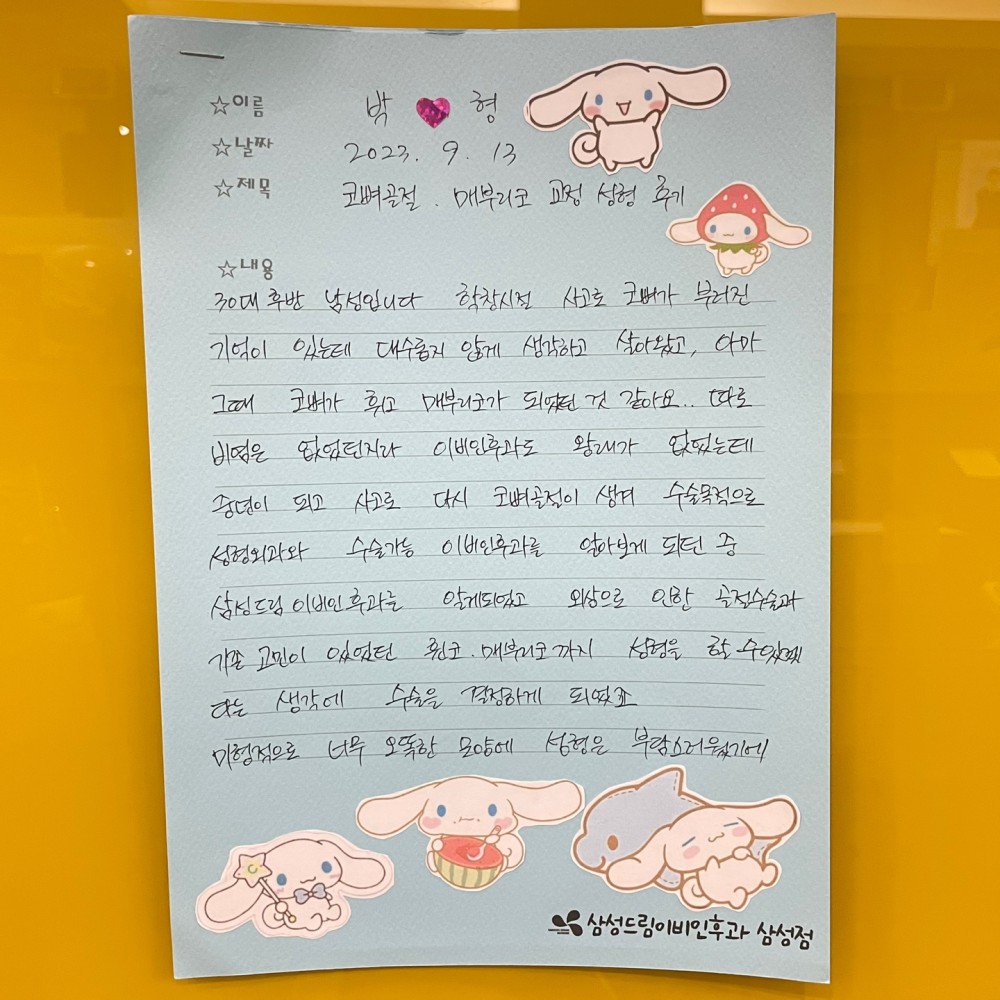 ☆이름 박 형
☆날짜 2023. 9. 13
☆제목 코뼈골절. 매부리코 교정 성형 후기
☆내용
30대 후반 남성입니다 학창시절 사고로 코뼈가 부러진
기억이 있는데 대수롭지 않게 생각하고 살아왔고, 아마
그때 코뼈가 휘고 매부리코가 되었던 것 같아요.. 따로
비염은 없었던지라 이비인후과도 왕래가 없었는데
중년이 되고 사고로 다시 코뼈골절이 생겨 수술목적으로
성형외과와 수술가능 이비인후과를 알아보게 되던 중
삼성드림이비인후과를 알게되었고 외상으로 인한 골절수술과
가쯘 고민이 있었던 휜코. 매부리코까지 성형을 할 수있겠
다는 생각에 수술을 결정하게 되었죠
미형적으로 너무 오똑한 모양에 성형은 부담스러웠기에
삼성드림이비인후과 삼성점